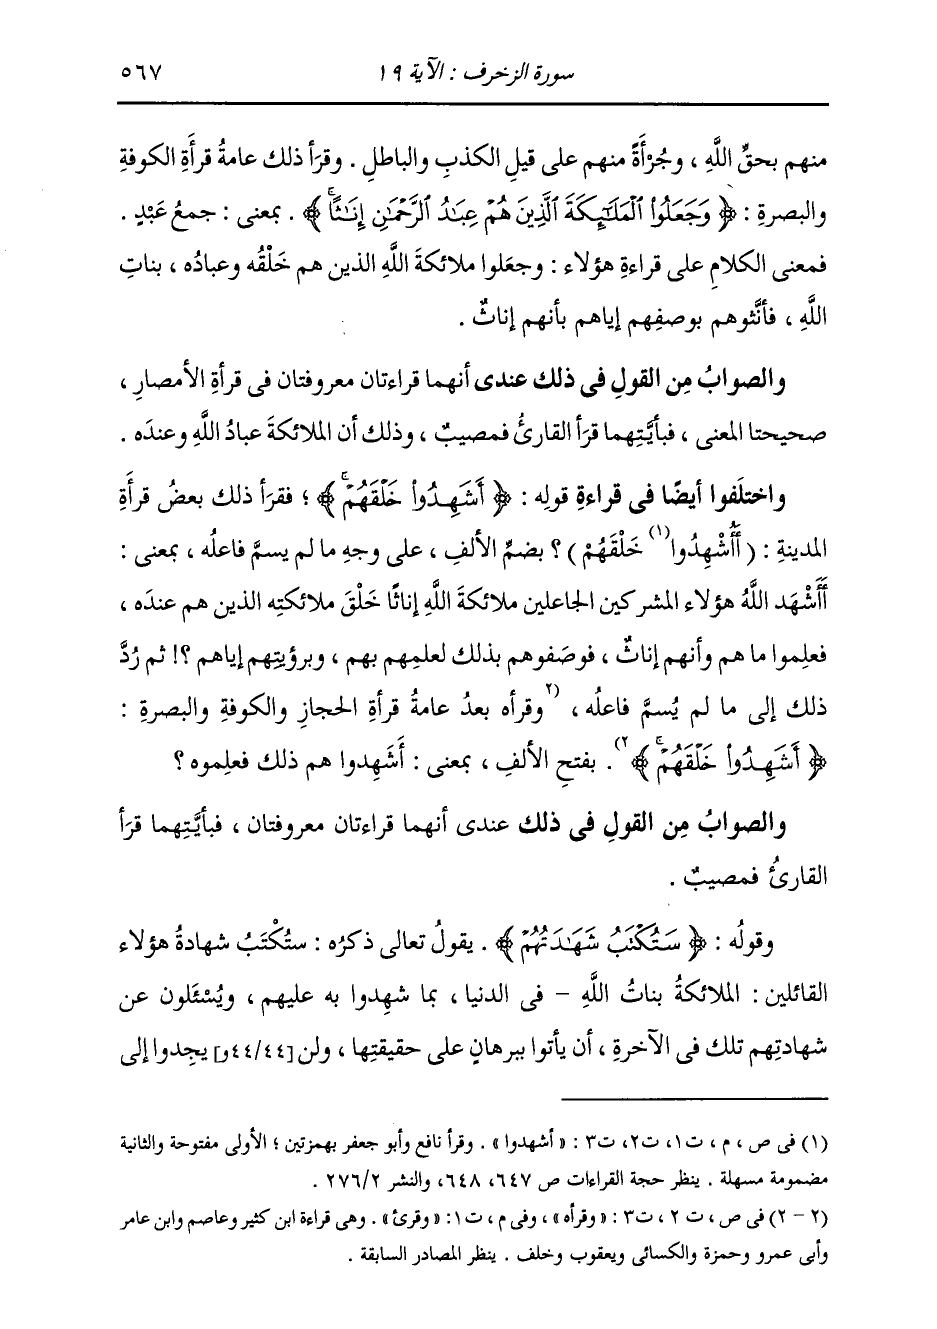 سورة الزخرف : الآية ١٩
٥٦٧
منهم بحقِّ اللَّهِ ، وجُرْأَةً منهم على قيلِ الكذبِ والباطلِ . وقرَأ ذلك عامةُ قرأَةِ الكوفةِ
والبصرةِ : ﴿ وَجَعَلُوا۟ ٱلْمَلَـٰٓئِكَةَ ٱلَّذِينَ هُمْ عِبَـٰدُ ٱلرَّحْمَـٰنِ إِنَـٰثًاۚ ﴾ . بمعنى : جمعُ عَبْدٍ .
فمعنى الكلامِ على قراءةِ هؤلاء : وجعَلوا ملائكةَ اللَّهِ الذين هم خَلْقُه وعبادُه ، بناتِ
اللَّهِ ، فأنَّثوهم بوصفِهم إياهم بأنهم إناثٌ .
والصوابُ مِن القولِ فى ذلك عندى أنهما قراءتان معروفتان فى قرأةِ الأمصارِ ،
صحيحتا المعنى ، فبأيَّتِهما قرَأ القارئُ فمصيبٌ ، وذلك أن الملائكةَ عبادُ اللَّهِ وعندَه .
واختلَفوا أيضًا فى قراءةِ قولِه : ﴿ أَشَهِدُوا۟ خَلْقَهُمْۚ ﴾ ؛ فقرَأ ذلك بعضُ قرأَةِ
المدينةِ : ( أَأُشْهِدُوا(١) خَلْقَهُمْ ) ؟ بضمِّ الألفِ ، على وجهِ ما لم يسمَّ فاعلُه ، بمعنى :
أَأَشْهَد اللَّهُ هؤلاء المشركين الجاعلين ملائكةَ اللَّهِ إناثًا خَلْقَ ملائكتِه الذين هم عندَه ،
فعلِموا ما هم وأنهم إناثٌ ، فوصَفوهم بذلك لعلمِهم بهم ، وبرؤيتِهم إياهم ؟! ثم رُدَّ
ذلك إلى ما لم يُسمَّ فاعلُه ، (٢وقرأه بعدُ عامةُ قرأةِ الحجازِ والكوفةِ والبصرةِ :
﴿ أَشَهِدُوا۟ خَلْقَهُمْۚ ﴾٢) . بفتحِ الألفِ ، بمعنى : أَشَهِدوا هم ذلك فعلِموه ؟
والصوابُ مِن القولِ فى ذلك عندى أنهما قراءتان معروفتان ، فبأيَّتِهما قرَأ
القارئُ فمصيبٌ .
وقولُه : ﴿ سَتُكْتَبُ شَهَـٰدَتُهُمْ ﴾ . يقولُ تعالى ذكرُه : ستُكْتَبُ شهادةُ هؤلاء
القائلين : الملائكةُ بناتُ اللَّهِ – فى الدنيا ، بما شهِدوا به عليهم ، ويُسْئَلون عن
شهادتِهم تلك فى الآخرةِ ، أن يأتوا ببرهانٍ على حقيقتِها ، ولن [٤٤/٤٤و] يجدوا إلى
(١) فى ص ، م ، ت١، ت٢، ت٣ : « أشهدوا » . وقرأ نافع وأبو جعفر بهمزتين ؛ الأولى مفتوحة والثانية
مضمومة مسهلة . ينظر حجة القراءات ص ٦٤٧، ٦٤٨، والنشر ٢٧٦/٢ .
(٢ – ٢) فى ص ، ت ٢ ، ت٣ : « وقرأه» ، وفى م ، ت١: « وقرئ» . وهى قراءة ابن كثير وعاصم وابن عامر
وأبى عمرو وحمزة والكسائى ويعقوب وخلف . ينظر المصادر السابقة .